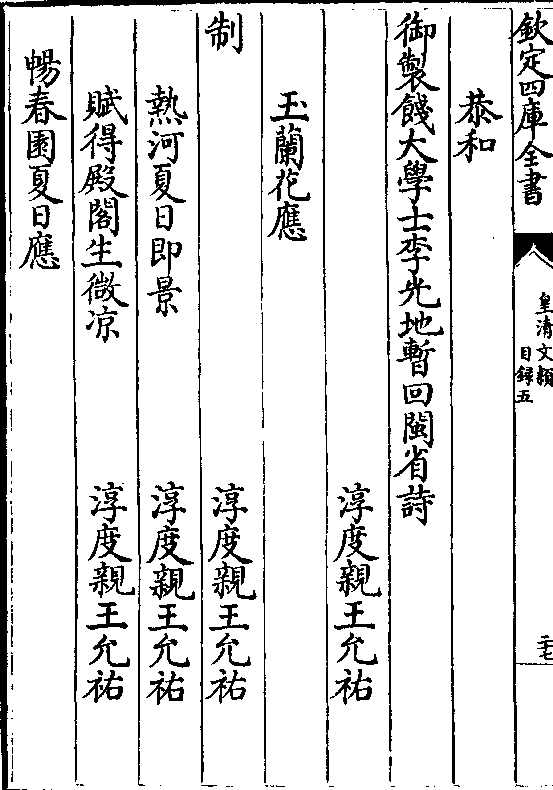 欽定四庫全書
皇清文穎
目錄五
恭和
御製餞大學士李光地暫回閩省詩
淳度親王允祐
玉蘭花應
制
淳度親王允祐
熱河夏日即景
淳度親王允祐
賦得殿閣生微涼
淳度親王允祐
暢春園夏日應